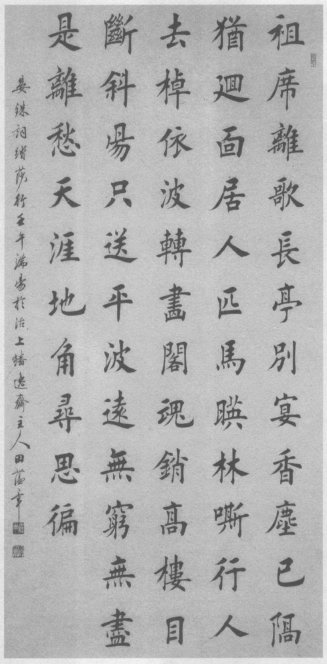 祖席離歌長亭別宴香塵已隔
猶迴面居人匹馬暎林嘶行人
去棹依波轉畫閣魂銷高樓目
斷斜昜只送平波遠無窮無盡
是離愁天涯地角尋思徧
晏殊詞踏莎行壬午端陽於沽上齋主人田蘊章